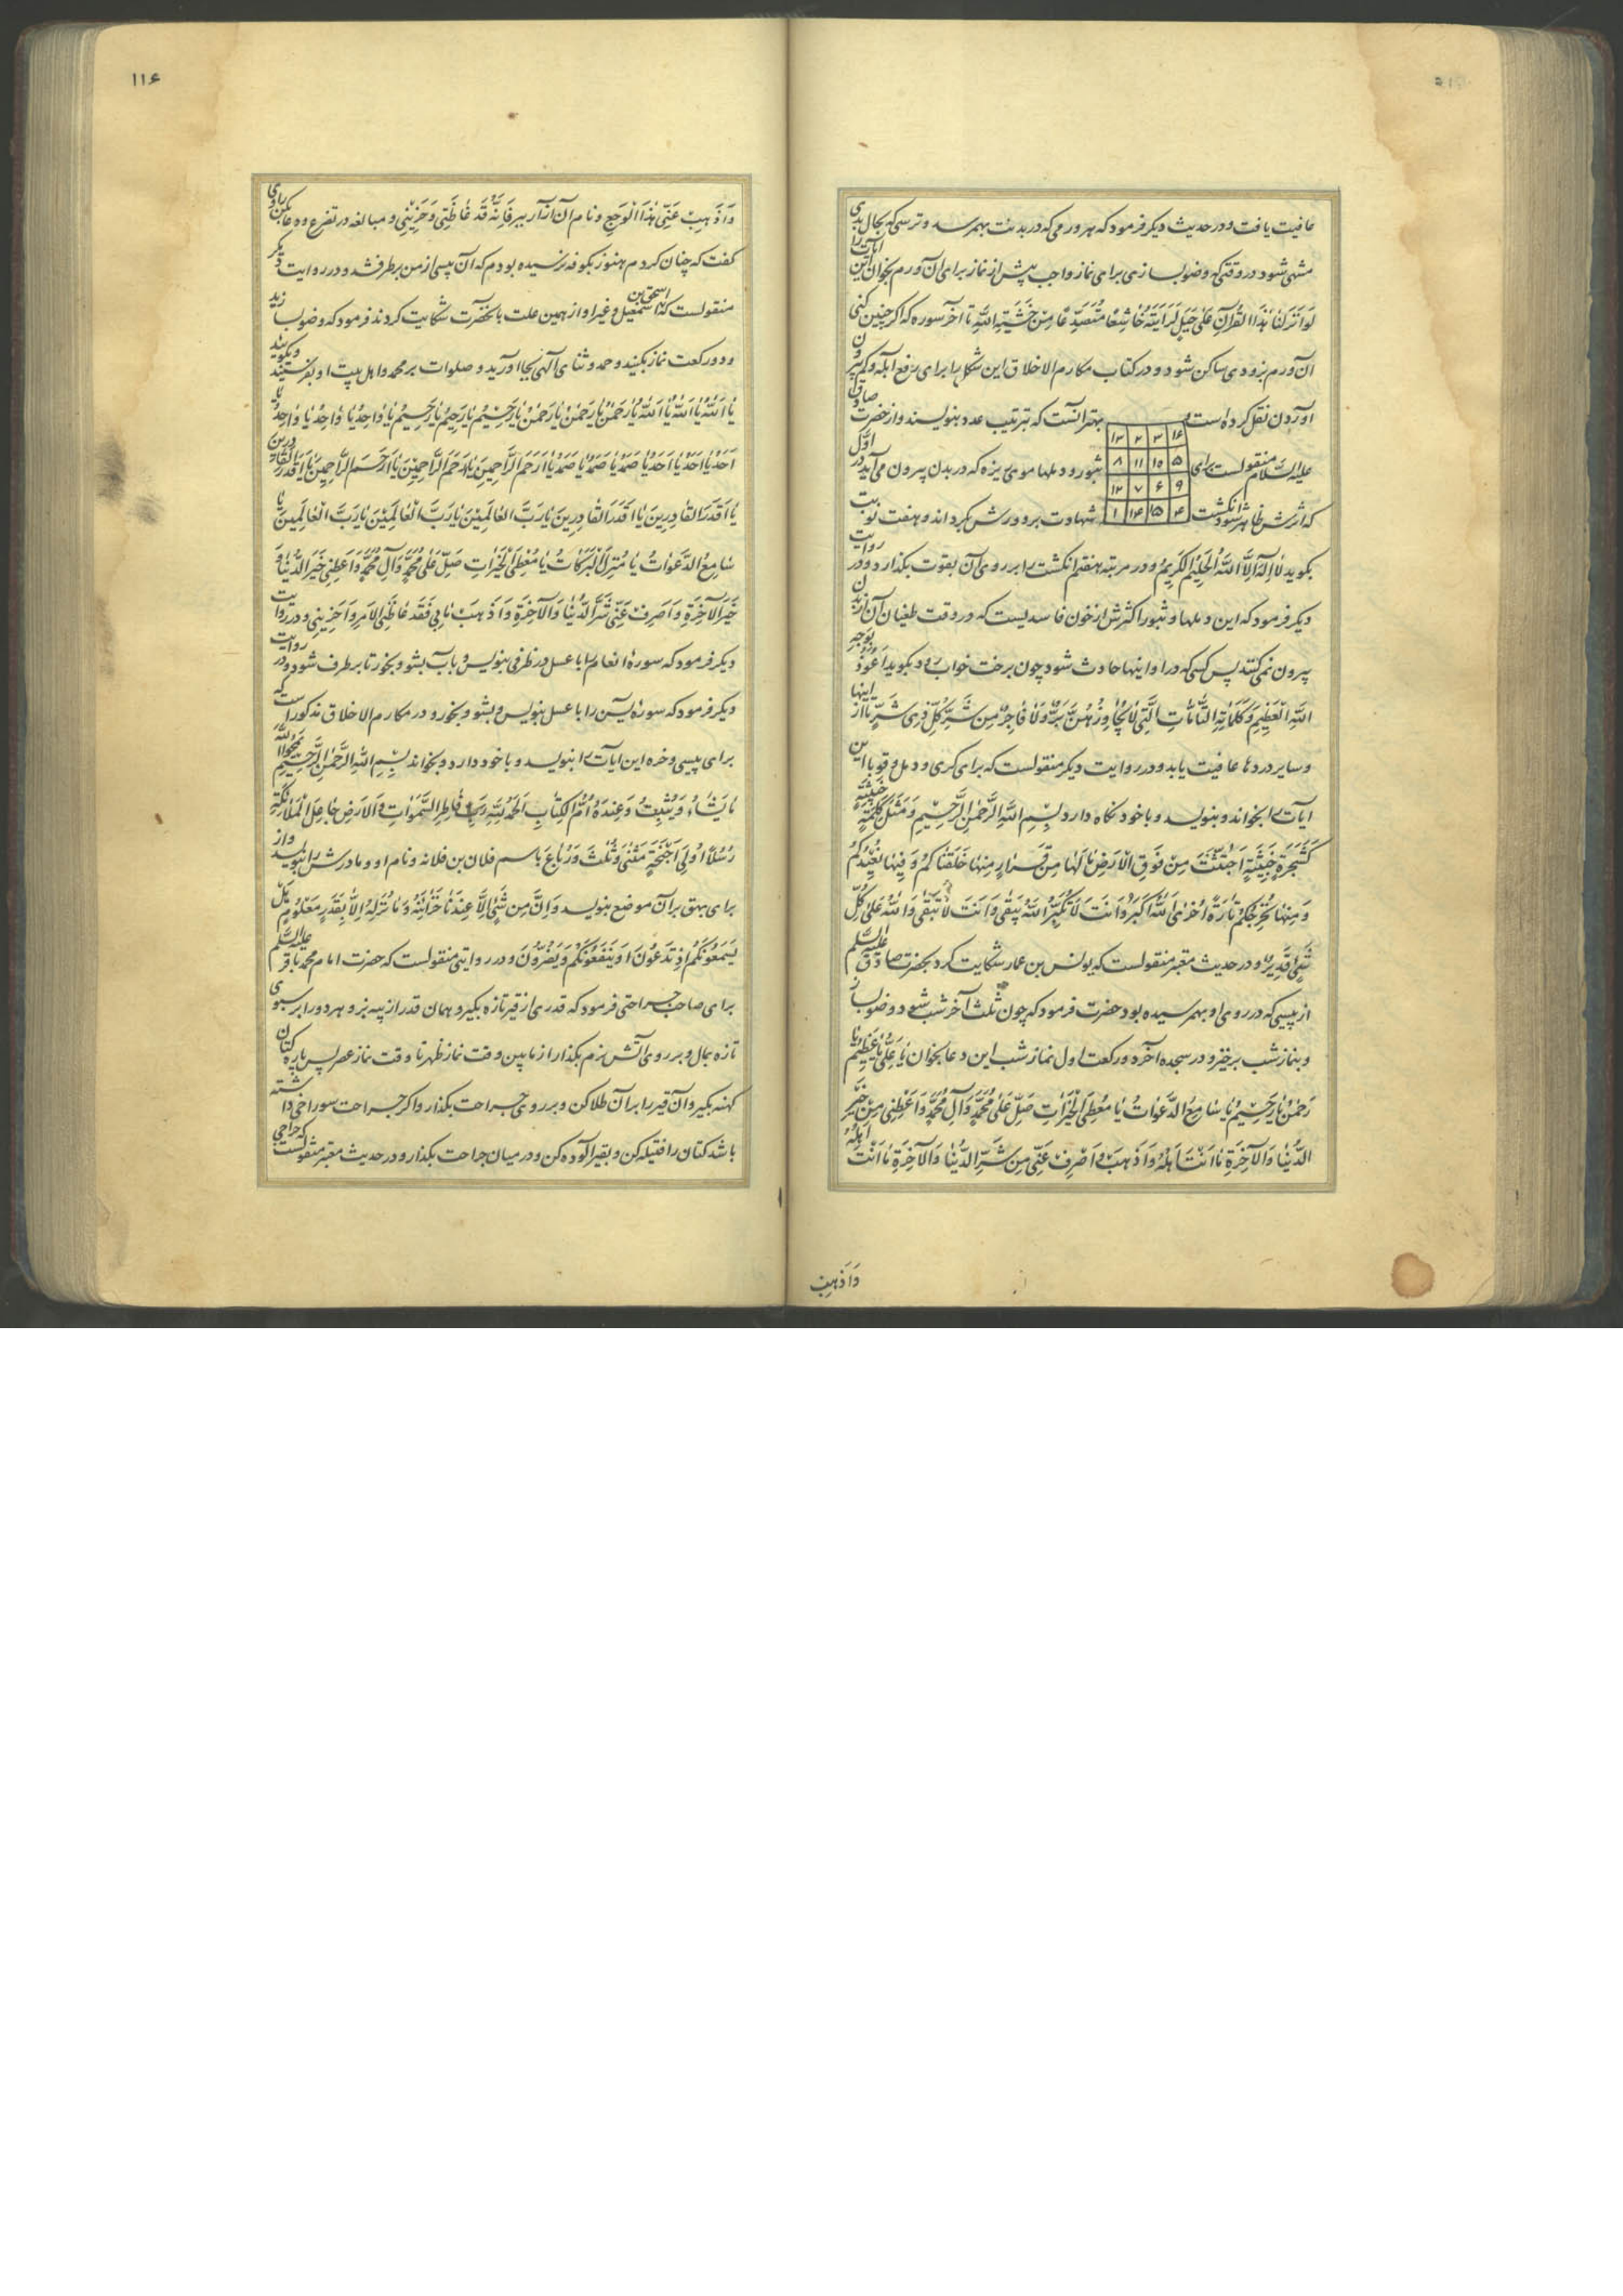 عافیت یافت و در حدیث دیکر فرمود که هر ورمی که در بدنت بهمرسد و ترسی که بحال بدی
منتهی شود در وقتی که وضو بسازی برای نماز واجب پیش از نماز برای آن ورم بخوان این آیات را
لَوْ اَنْزَلْنَا هٰذَا الْقُرْآنَ عَلٰی جَبَلٍ لَرَاَیْتَهُ خَاشِعًا مُتَصَدِّعًا مِنْ خَشْیَةِ اللّٰهِ تا آخر سوره که اکر چنین کنی
آن ورم بزودی ساکن شود و در کتاب مکارم الاخلاق این شکل را برای رفع آبله و کم بیرون
آوردن نقل کرده است بهتر آنست که بترتیب عدد بنویسند و از حضرت صادق
۱۶ ۳ ۲ ۱۳
علیه السلام منقولست برای بثور و دملها موی ریزه که در بدن بیرون می آید در اوّل
۵ ۱۰ ۱۱ ۸
۹ ۶ ۷ ۱۲
که اثرش ظاهر شود انکشت شهادت بر دورش بکرداند و هفت نوبت
۴ ۱۵ ۱۴ ۱
بکوید لَا اِلٰهَ اِلَّا اللّٰهُ الْحَلِیْمُ الْکَرِیْمُ و در مرتبه هفتم انکشت را بر روی آن بقوت بکذارد و در روایت
دیکر فرمود که این دملها و بثور اکثرش از خون فاسدیست که در وقت طغیان آن از بدن
بیرون نمی کنند پس کسی که در او اینها حادث شود چون برخت خواب رود بکوید اَعُوْذُ بِوَجْهِ
اللّٰهِ الْعَظِیْمِ وَ کَلِمَاتِهِ التَّامَّاتِ الَّتِی لَا یُجَاوِزُهُنَّ بَرٌّ وَ لَا فَاجِرٌ مِنْ شَرِّ کُلِّ ذِی شَرٍّ تا از اینها
و سایر دردها عافیت یابد و در روایت دیکر منقولست که برای کری و دمل و قوبا این
آیات را بخواند و بنویسد و با خود نکاه دارد بِسْمِ اللّٰهِ الرَّحْمٰنِ الرَّحِیْمِ وَ مَثَلُ کَلِمَةٍ خَبِیْثَةٍ
کَشَجَرَةٍ خَبِیْثَةٍ اجْتُثَّتْ مِنْ فَوْقِ الْاَرْضِ مَا لَهَا مِنْ قَرَارٍ مِنْهَا خَلَقْنَاکُمْ وَ فِیْهَا نُعِیْدُکُمْ
وَ مِنْهَا نُخْرِجُکُمْ تَارَةً اُخْرٰی اَللّٰهُ اَکْبَرُ وَ اَنْتَ لَا تَکْبُرُ اَللّٰهُ یَبْقٰی وَ اَنْتَ لَا تَبْقٰی وَ اللّٰهُ عَلٰی کُلِّ
شَیْءٍ قَدِیْرٌ و در حدیث معتبر منقولست که یونس بن عمار شکایت کرد بحضرت صادق علیه السلم
از پیسی که در روی او بهمرسیده بود حضرت فرمود که چون ثلث آخر شب شود وضو بساز
و بنماز شب برخیز و در سجده آخر دو رکعت اول نماز شب این دعا بخوان یَا عَلِیُّ یَا عَظِیْمُ یَا
رَحْمٰنُ یَا رَحِیْمُ یَا سَامِعَ الدَّعَوَاتِ یَا مُعْطِیَ الْخَیْرَاتِ صَلِّ عَلٰی مُحَمَّدٍ وَ آلِ مُحَمَّدٍ وَ اَعْطِنِی مِنْ خَیْرِ
الدُّنْیَا وَ الْآخِرَةِ مَا اَنْتَ اَهْلُهُ وَ اصْرِفْ عَنِّی مِنْ شَرِّ الدُّنْیَا وَ الْآخِرَةِ مَا اَنْتَ اَهْلُهُ
وَ اَذْهِبْ
۱۱۶
وَ اَذْهِبْ عَنِّی هٰذَا الْوَجَعَ و نام آن آزار ببر فَاِنَّهُ قَدْ غَاظَنِی وَ حَزَنَنِی و مبالغه در تضرع و دعا بکن راوی
کفت که چنان کردم هنوز بکوفه نرسیده بودم که آن پیسی از من برطرف شد و در روایت دیکر
منقولست که اسحق بن اسمعیل و غیر او از همین علت بآنحضرت شکایت کردند فرمود که وضو بسازید
و دو رکعت نماز بکنید و حمد و ثنای آلهی بجا آورید و صلوات بر محمد و اهل بیت او بفرستید و بکویید
یَا اَللّٰهُ یَا اَللّٰهُ یَا اَللّٰهُ یَا رَحْمٰنُ یَا رَحْمٰنُ یَا رَحْمٰنُ یَا رَحِیْمُ یَا رَحِیْمُ یَا رَحِیْمُ یَا وَاحِدُ یَا وَاحِدُ یَا وَاحِدُ یَا
اَحَدُ یَا اَحَدُ یَا اَحَدُ یَا صَمَدُ یَا صَمَدُ یَا صَمَدُ یَا اَرْحَمَ الرَّاحِمِیْنَ یَا اَرْحَمَ الرَّاحِمِیْنَ یَا اَرْحَمَ الرَّاحِمِیْنَ یَا اَقْدَرَ الْقَادِرِیْنَ
یَا اَقْدَرَ الْقَادِرِیْنَ یَا اَقْدَرَ الْقَادِرِیْنَ یَا رَبَّ الْعَالَمِیْنَ یَا رَبَّ الْعَالَمِیْنَ یَا رَبَّ الْعَالَمِیْنَ یَا
سَامِعَ الدَّعَوَاتِ یَا مُنْزِلَ الْبَرَکَاتِ یَا مُعْطِیَ الْخَیْرَاتِ صَلِّ عَلٰی مُحَمَّدٍ وَ آلِ مُحَمَّدٍ وَ اَعْطِنِی خَیْرَ الدُّنْیَا وَ
خَیْرَ الْآخِرَةِ وَ اصْرِفْ عَنِّی شَرَّ الدُّنْیَا وَ الْآخِرَةِ وَ اَذْهِبْ مَا بِی فَقَدْ غَاظَنِی الْاَمْرُ وَ اَحْزَنَنِی و در روایت
دیکر فرمود که سورۀ انعام را با عسل در ظرفی بنویس و بآب بشو و بخور تا برطرف شود و در روایت
دیکر فرمود که سورۀ یٓس را با عسل بنویس و بشو و بخور و در مکارم الاخلاق مذکور است که
برای پیسی و خره این آیات را بنویسد و با خود دارد و بخواند بِسْمِ اللّٰهِ الرَّحْمٰنِ الرَّحِیْمِ یَمْحُوا اللّٰهُ
مَا یَشَاءُ وَ یُثْبِتُ وَ عِنْدَهُ اُمُّ الْکِتَابِ اَلْحَمْدُ لِلّٰهِ فَاطِرِ السَّمٰوَاتِ وَ الْاَرْضِ جَاعِلِ الْمَلَائِکَةِ
رُسُلًا اُولِی اَجْنِحَةٍ مَثْنٰی وَ ثُلٰثَ وَ رُبَاعَ باسم فلان بن فلانه و نام او و مادرش را بنویسد و از
برای بهق بر آن موضع بنویسد وَ اِنْ مِنْ شَیْءٍ اِلَّا عِنْدَنَا خَزَائِنُهُ وَ مَا نُنَزِّلُهُ اِلَّا بِقَدَرٍ مَعْلُوْمٍ هَلْ
یَسْمَعُوْنَکُمْ اِذْ تَدْعُوْنَ اَوْ یَنْفَعُوْنَکُمْ اَوْ یَضُرُّوْنَ و در روایتی منقولست که حضرت امام محمد باقر علیه السلم
برای صاحب جراحتی فرمود که قدری از قیر تازه بکیر و همان قدر از پیه بز و هر دو را بر سبوی
تازه بمال و بر روی آتش نرم بکذار از مابین وقت نماز ظهر تا وقت نماز عصر پس پاره کتان
کهنه بکیر و آن قیر را بر آن طلا کن و بر روی جراحت بکذار و اکر جراحت سوراخی داشته
باشد کتان را فتیله کن و بقیر آلوده کن و در میان جراحت بکذار و در حدیث معتبر منقولست که جراحی